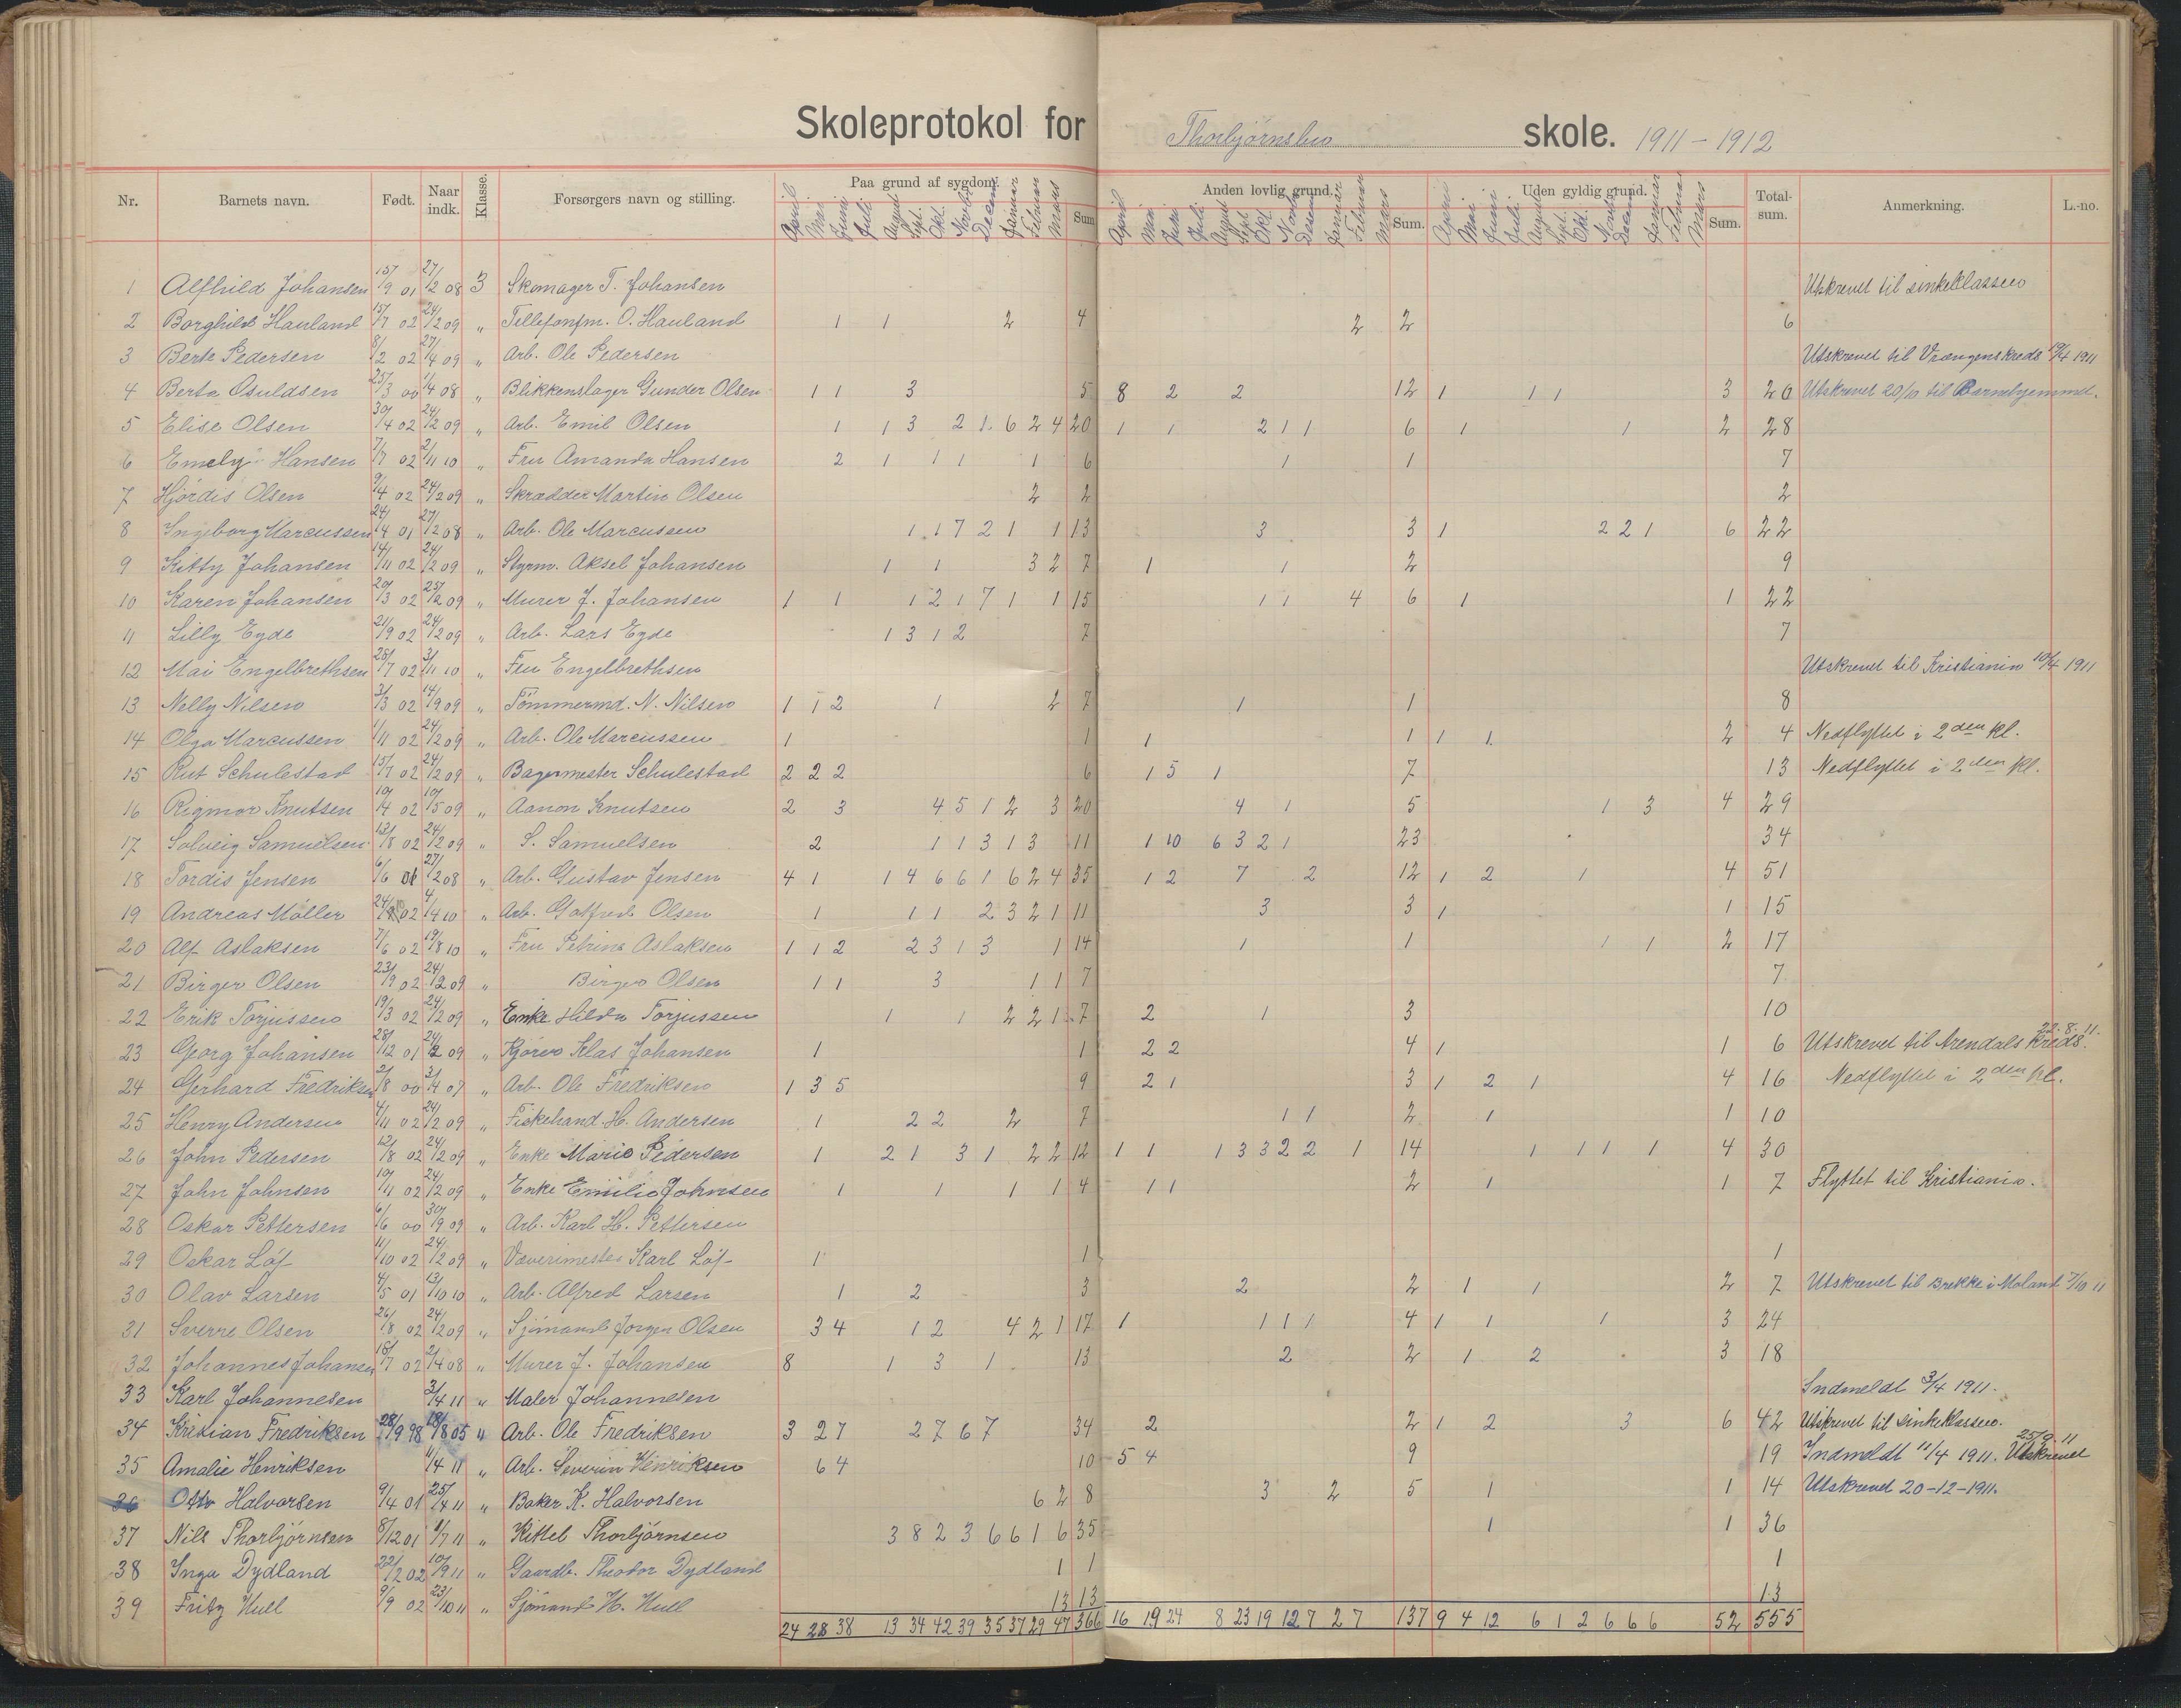 Skoleprotokol for Thorbjörnsbu skole. 1911 – 1912
Nr. Barnets navn. Født. Naar indk. Klasse. Forsørgers navn og stilling. Paa grund af sygdom. Sum Anden lovlig grund. Sum. Uden gyldig grund. Sum. Total-sum. Anmerkning. L.-no.
April Mai Juni Juli August Sept. Okt. Novbr. Decem Januar Februar Mars April Mai Juni Juli August Sept Okt. Novbr Desem Januar Februar Mars April Mai Juni Juli August Sept. Okt. Novbr Decem Januar Februar Mars
1 Alfhild Johansen 15/9 01 27/2 08 3 Skomager T. Johansen Utskrevet til sinkeklassen
2 Borghild Hauland 15/7 02 24/2 09 „ Tellefonfm. O. Hauland 1 1 2 4 2 2 6
3 Berta Pedersen 8/2 02 27/4 09 „ Arb. Ole Pedersen Utskrevet til Vrængenskreds 19/4 1911
4 Berta Osuldsen 25/3 00 1/4 08 „ Blikkenslager Gunder Olsen 1 1 3 5 8 2 2 12 1 1 1 3 20 Utskrevet 20/10 til Barnehjemmet.
5 Elise Olsen 30/4 02 24/2 09 „ Arb. Emil Olsen 1 1 3 2 1 6 2 4 20 1 1 2 1 1 6 1 1 2 28
6 Emely Hansen 7/7 02 2/11 10 „ Fru Amanda Hansen 2 1 1 1 1 6 1 1 7
7 Hjördis Olsen 9/4 02 24/2 09 „ Skrædder Martin Olsen 2 2 2
8 Ingeborg Marcussen 24/4 01 27/2 08 „ Arb. Ole Marcussen 1 1 7 2 1 1 13 3 3 1 2 2 1 6 22
9 Kitty Johansen 14/11 02 24/2 09 „ Styrm. Aksel Johansen 1 1 3 2 7 1 1 2 9
10 Karen Johansen 20/3 02 25/2 09 „ Murer J. Johansen 1 1 1 2 1 7 1 1 15 1 1 4 6 1 1 22
11 Lilly Eyde 21/9 02 24/2 09 „ Arb. Lars Eyde 1 3 1 2 7 7
12 Mai Engelbrethsen 28/7 02 3/11 10 „ Fru Engelbrethsen Utskrevet til Kristiania 10/4 1911
13 Nelly Nilsen 3/3 02 14/9 09 „ Tömmermd. N. Nilsen 1 1 2 1 2 7 1 1 8
14 Olga Marcussen 1/11 02 24/2 09 „ Arb. Ole Marcussen 1 1 1 1 1 1 2 4 Nedflyttet i 2den kl.
15 Rut Schulestad 15/7 02 24/2 09 „ Bagermester Schulestad 2 2 2 6 1 5 1 7 13 Nedflyttet i 2den kl.
16 Rigmor Knutsen 10/4 02 10/5 09 „ Aanon Knutsen 2 3 4 5 1 2 3 20 4 1 5 1 3 4 29
17 Solveig Samuelsen 13/8 02 24/2 09 „ S. Samuelsen 2 1 1 3 1 3 11 1 10 6 3 2 1 23 34
18 Tordis Jensen 6/6 01 27/2 08 „ Arb. Gustav Jensen 4 1 1 4 6 6 1 6 2 4 35 1 2 7 2 12 1 2 1 4 51
19 Andreas Möller 24/ 02 4/4 10 „ Arb. Gotfred Olsen 1 1 1 2 3 2 1 11 3 3 1 1 15
20 Alf Aslaksen 7/6 02 19/8 10 „ Fru Petrine Aslaksen 1 1 2 2 3 1 3 1 14 1 1 1 1 2 17
21 Birger Olsen 23/9 02 24/2 09 „ Birger Olsen 1 1 3 1 1 7 7
22 Erik Torjussen 19/3 02 24/2 09 „ Enke Hilda Torjussen 1 1 2 2 1 7 2 1 3 10
23 Georg Johansen 28/12 01 24/2 09 „ Kjörer Klas Johansen 1 1 2 2 4 1 1 6 Utskrevet til Arendals Kreds. 22.8.11.
24 Gerhard Fredriksen 2/8 00 3/4 07 „ Arb. Ole Fredriksen 1 3 5 9 2 1 3 1 2 1 4 16 Nedflyttet i 2den kl.
25 Henry Andersen 4/11 02 24/2 09 „ Fiskehand. H. Andersen 1 2 2 2 7 1 1 2 1 1 10
26 John Pedersen 12/8 02 24/2 09 „ Enke Marie Pedersen 1 2 1 3 1 2 2 12 1 1 1 3 3 2 2 1 14 1 1 1 1 4 30
27 John Johnsen 10/11 02 24/2 09 „ Enke Emilie Johnsen 1 1 1 1 4 1 1 2 1 1 7 Flyttet til Kristiania.
28 Oskar Pettersen 6/6 00 30/9 09 „ Arb. Karl H. Pettersen
29 Oskar Löf 11/10 02 24/2 09 „ Væverimester Karl Löf 1 1 1
30 Olav Larsen 4/5 01 13/10 10 „ Arb. Alfred Larsen 1 2 3 2 2 1 1 2 7 Utskrevet til Brekke i Moland 7/10 11
31 Sverre Olsen 26/8 02 24/2 09 „ Sjömand Jörgen Olsen 3 4 1 2 4 2 1 17 1 1 1 1 4 1 1 1 3 24
32 Johannes Johansen 18/7 02 2/4 08 „ Murer J. Johansen 8 1 3 1 13 2 2 1 2 3 18
33 Karl Johannesen 3/4 11 „ Maler Johannesen Indmeldt 3/4 1911.
34 Kristian Fredriksen 28/9 98 18/8 05 „ Arb. Ole Fredriksen 3 2 7 2 7 6 7 34 2 2 1 2 3 6 42 Utskrevet til sinkeklassen.
35 Amalie Henriksen 11/4 11 „ Arb. Severin Henriksen 6 4 10 5 4 9 19 Indmeldt 11/4 1911. Utskrevet 25/9 11
36 Otto Halvorsen 9/4 01 25/4 11 „ Baker K. Halvorsen 6 2 8 3 2 5 1 1 14 Utskrevet 20-12-1911.
37 Nils Thorbjörnsen 8/12 01 1/7 11 „ Kittel Thorbjörnsen 3 8 2 3 6 6 1 6 35 1 1 36
38 Inga Dydland 22/2 02 10/9 11 „ Gaardb. Theodor Dydland 1 1 1
39 Fritz Hull 9/9 02 23/10 11 „ Sjömand H. Hull 13 13 13
24 28 38 13 34 42 39 35 37 29 47 366 16 19 24 8 23 19 12 7 2 7 137 9 4 12 6 1 2 6 6 6 52 555